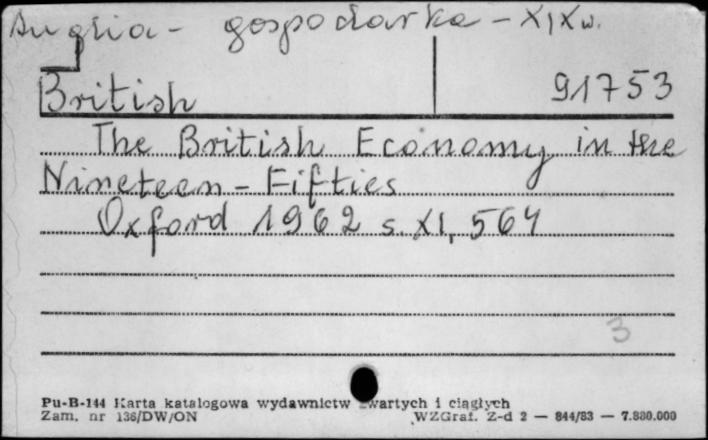 Anglia - gospodarka - XIX w.
British 91753
The British Economy in the
Nineteen - Fifties
Oxford 1962 s. XI, 564
3
Pu-B-144 Karta katalogowa wydawnictw zwartych i ciągłych
Zam. nr 136/DW/ON WZGraf. Z-d 2 — 844/83 — 7.880.000